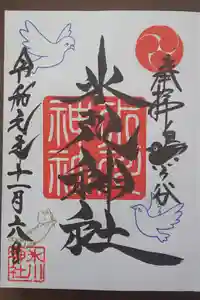 奉拝 鳩ヶ谷
氷川神社
令和元年十一月六日
氷川
神社